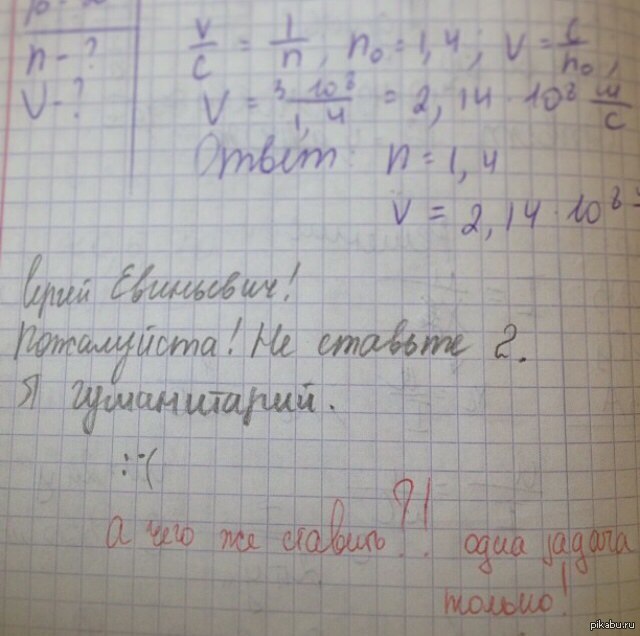 n - ?
v - ?
v/c = 1/n, n₀ = 1,4; v = c/n₀,
v = 3·10⁸/1,4 = 2,14 · 10⁸ м/с
Ответ: n = 1,4
v = 2,14 · 10⁸
Сергей Евиньевич!
Пожалуйста! Не ставьте 2.
Я гуманитарий.
:'(
А чего же ставить?! одна задача
только!
pikabu.ru